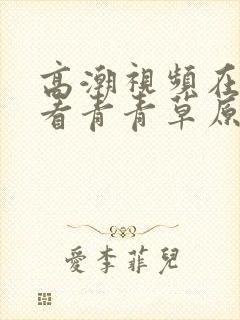 高潮視頻在
看青青草原
愛李菲兒